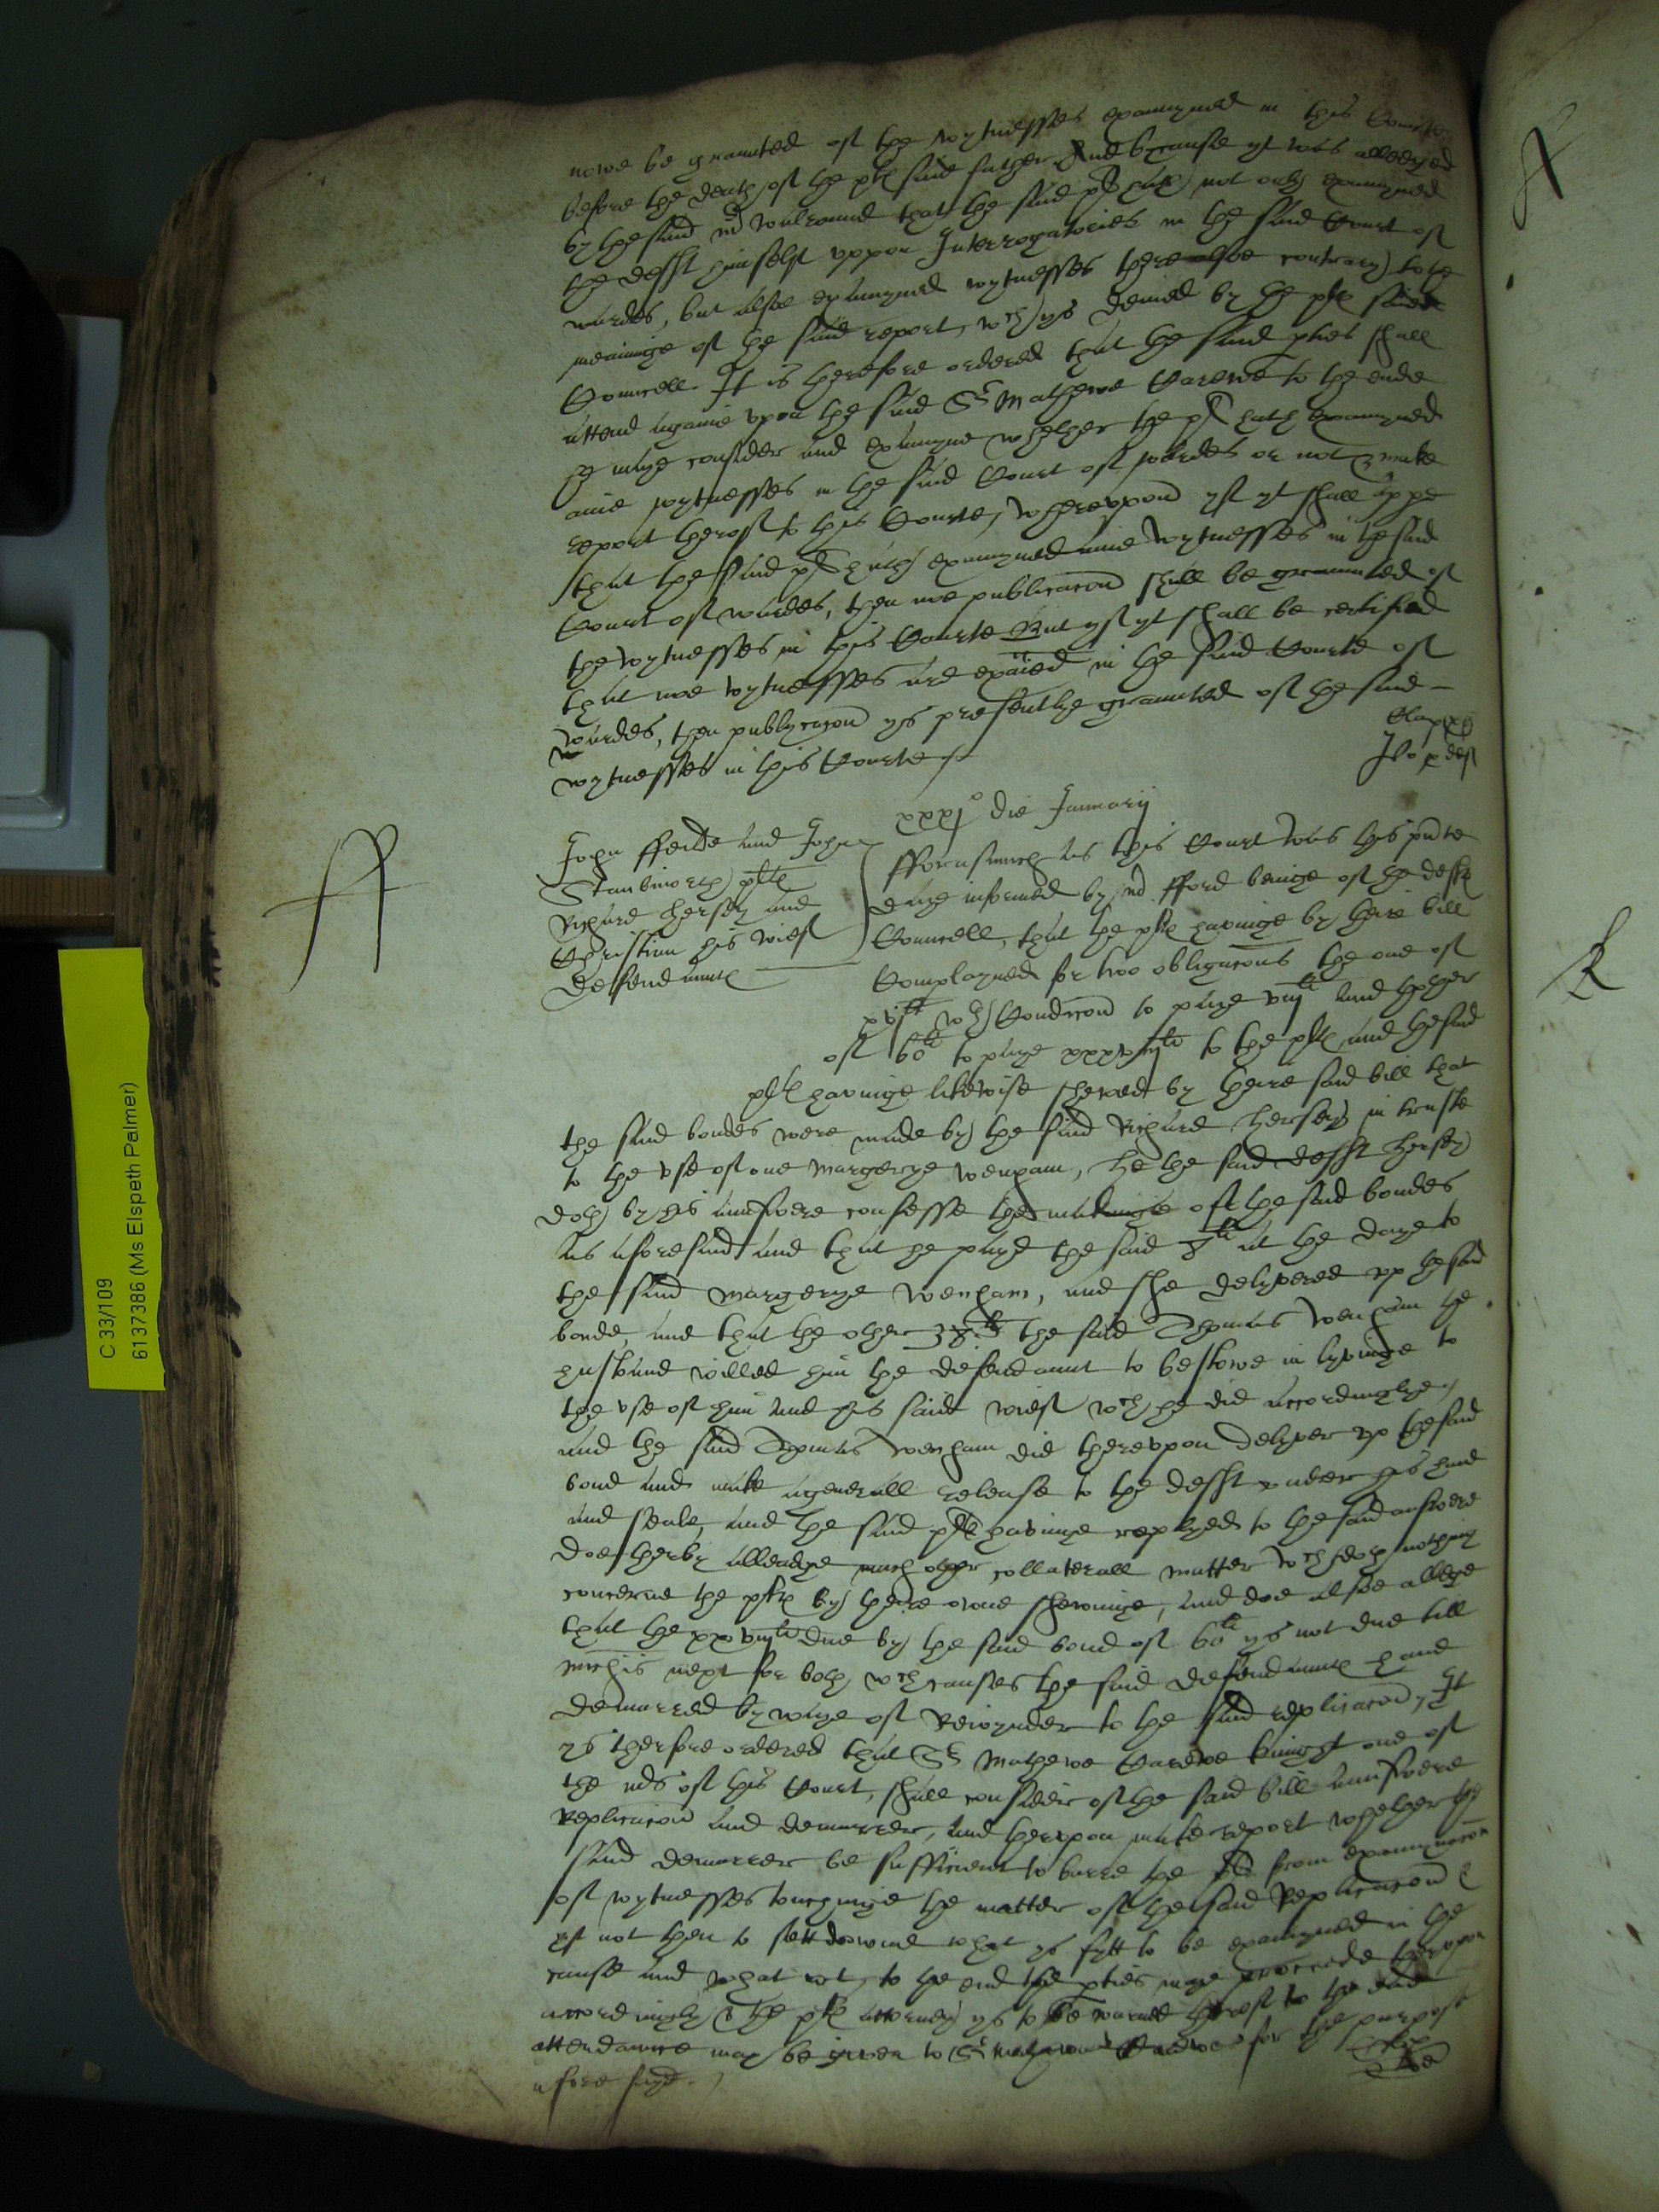 nowe be graunted of the wytnesses examyned in this Courte
before the death of the plt said father And because yt was alledged
by the said mr wulround that the said plt hath not only examyned
the defft himselfe uppon Interrogatories in the said Court of
wardes, but alsoe examyned wytnesses there alsoe contrary to the
meaninge of the said report, wch ys denied by the plt said
Councell It is therefore ordered that the said pties shall
attend againe upon the said Sr Mathewe Carewe to the ende
he maye consider and examyne whether the plt hath examyned
anie wytnesses in the said Court of wardes or not & make
report therof to this Courte, Whereuppon yf yt shall appe
that the said plt hath examyned anie wytnesses in the said
Court of wardes, then noe publicacon shall be graunted of
the wytnesses in this Courte But yf yt shall be certified
that noe wytnesses are exaied in the said Courte of
wardes, then publycacon ys presentlye graunted of the said
wytnesses in this Courte
xxxjo die Januarij
John ffeilde and John
Stanbworth plts
Richard Hersey and
Christian his wief
Defendaunts
fforasmuch as this Court was this pnte
daye informed by mr fford beinge of the deffts
Councell, that the plts havinge by theire bill
Complayned for two obligacons the one of
xvjli wth Condicon to paye viijli and thother
of 60li to paye xxxviijli to the plts and the said
plts havinge likewise shewed by theire said bill that
the said bondes were made by the said Richard Hersey in truste
to the use of one Margerye Wenham, he the said defft Hersey
doth by his aunswere confesse the makinge of the said bondes
as aforesaid and that he payd the said 8li at the daye to
the said Margerye Wenham, and she delyvered up the said
bonde, and that the other 38li the said Thomas Wenham the
husband willed him the defendaunt to bestowe in lyvinge to
the use of him and his said wief wch he did accordinglye,
and the said Thomas Wenham did thereupon delyver up the said
bond and make a generall release to the defft under his hand
and seale, and the said plts havinge replyed to the said answere
doe therby alleadge much other collaterall matter wch doth nothing
concerne the plts by theire owne shewinge, and doe alsoe allege
that the xxxviijli due by the said bond of 60li ys not due till
michis next for both wch causes the said defendaunts have
demurred by waye of Rejoynder to the said replicacon, It
ys therfore ordered that Sr Mathewe Carewe knight one of
the mrs of this Court, shall consider of the said bill aunswere
Replicacon and demurrer, and therupon make report whether the
said demurrer be sufficient to barre the plts from examynacon
of wytnesses touchinge the matter of the said Replicacon &
yf not then to sett downe what ys fytt to be examyned in the
cause and what not, to the end the pties maye proceede therupon
accordingly & the plts attorney ys to be warned therof to the end
attendance may be given to Sr Mathewe Carewe for the purpose
aforesayd.
C 33/109
6137386 (Ms Elspeth Palmer)